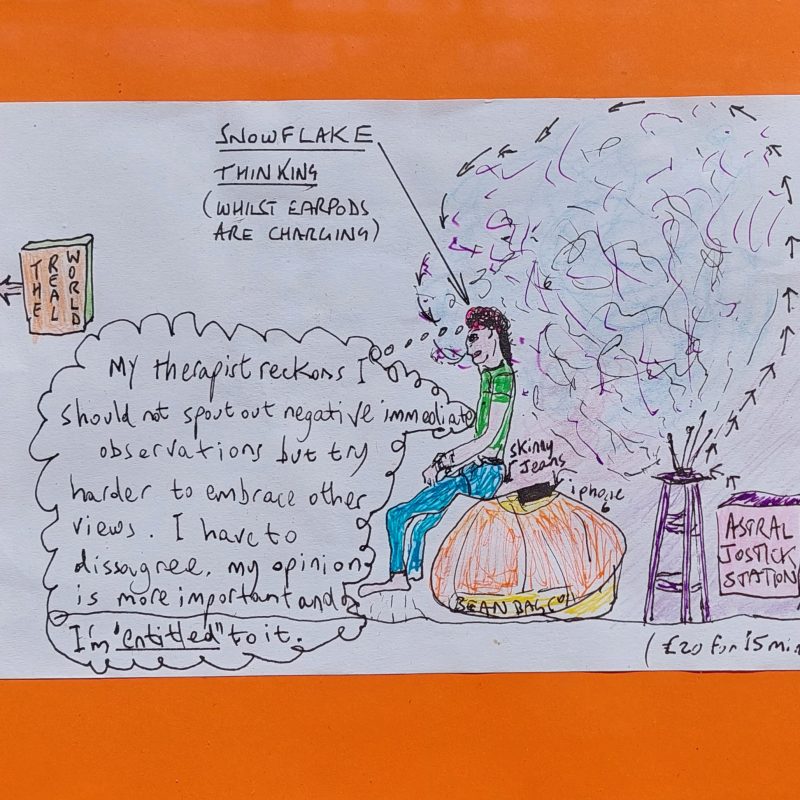 SNOWFLAKE
THINKING
(WHILST EARPODS
ARE CHARGING)
THE REAL WORLD
My therapist reckons I
should not spout out negative immediate
observations but try
harder to embrace other
views. I have to
dissagree, my opinion
is more important and
I'm "entitled" to it.
skinny
Jeans
iphone
6
BEANBAG CO
ASTRAL
JOSTICK
STATION
(£20 for 15 min